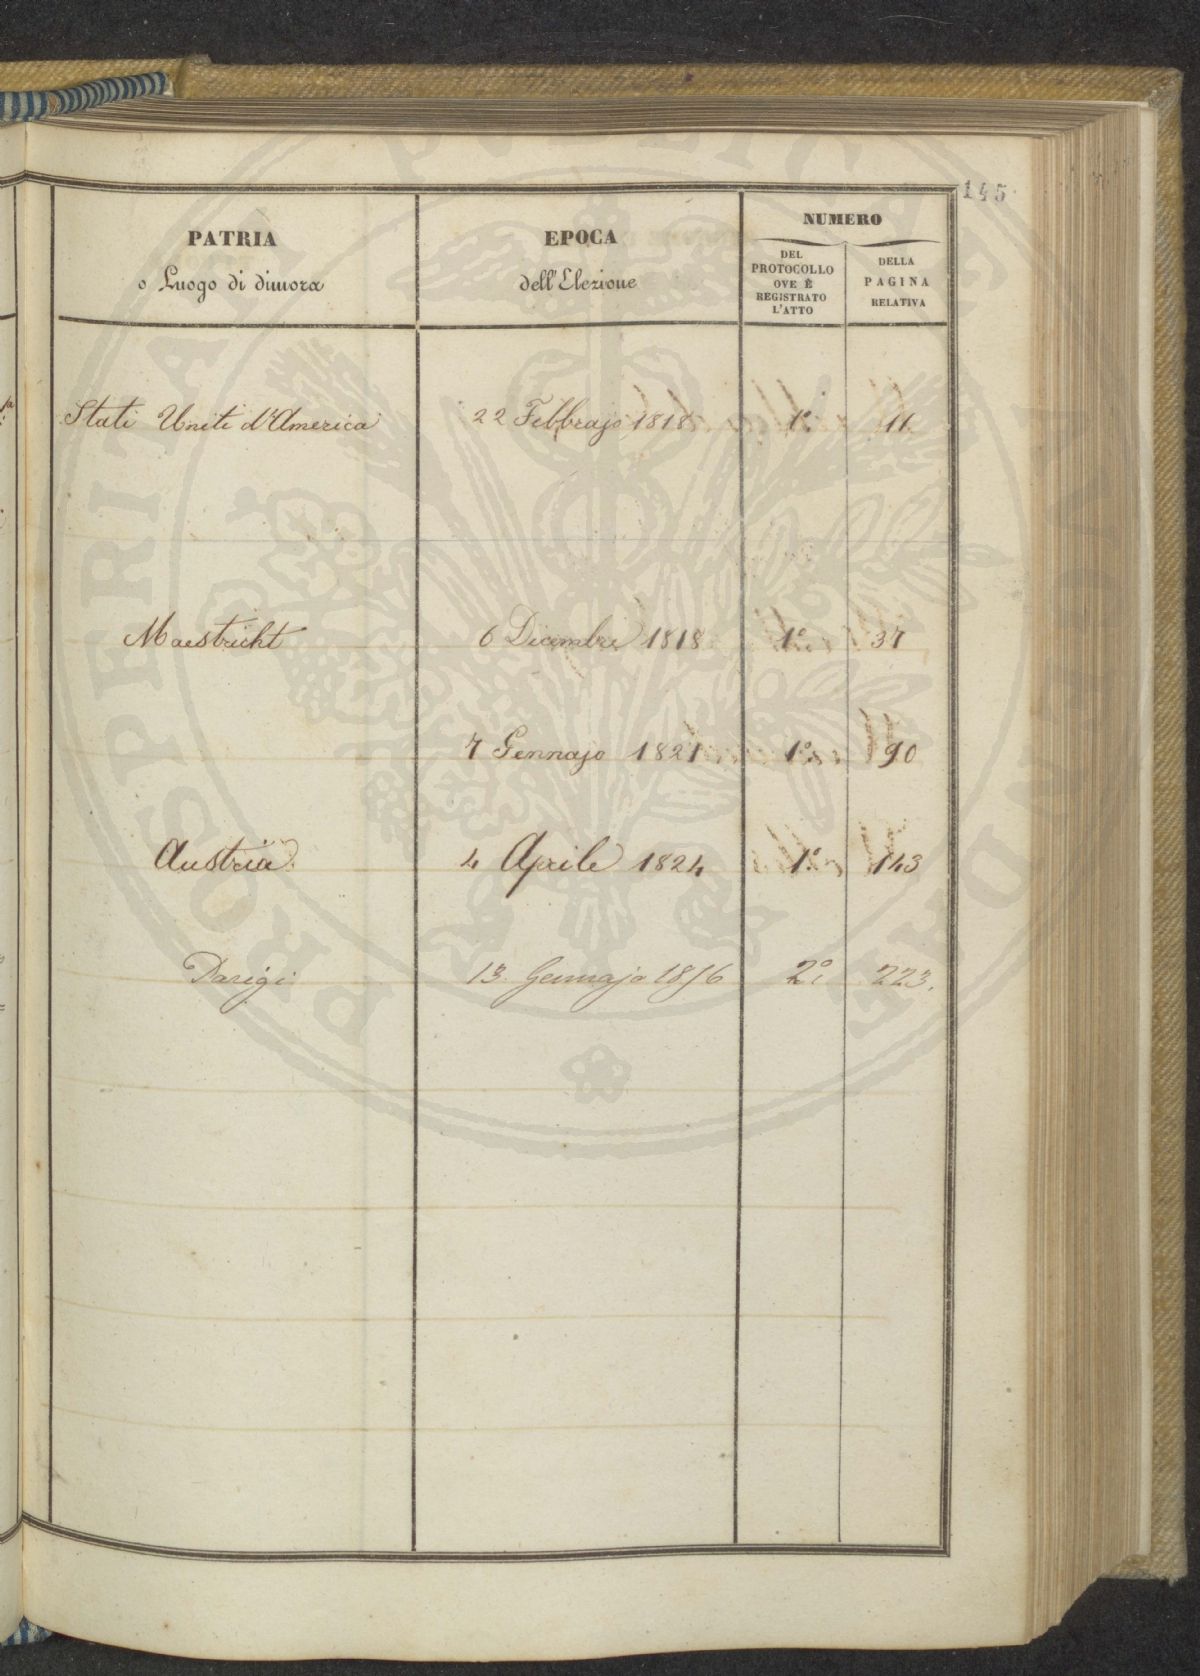 145
PATRIA
o Luogo di dimora
EPOCA
dell'Elezione
NUMERO
DEL
PROTOCOLLO
OVE È
REGISTRATO
L'ATTO
DELLA
PAGINA
RELATIVA
Stati Uniti d'America 22 Febbrajo 1818 1º 11.
Maestricht 6 Dicembre 1818 1º 37
7 Gennajo 1821 1º 90
Austria 4 Aprile 1824 1º 143
Parigi 13. Gennajo 1856 2º 223.
PROSPERITATI PUBLICAE